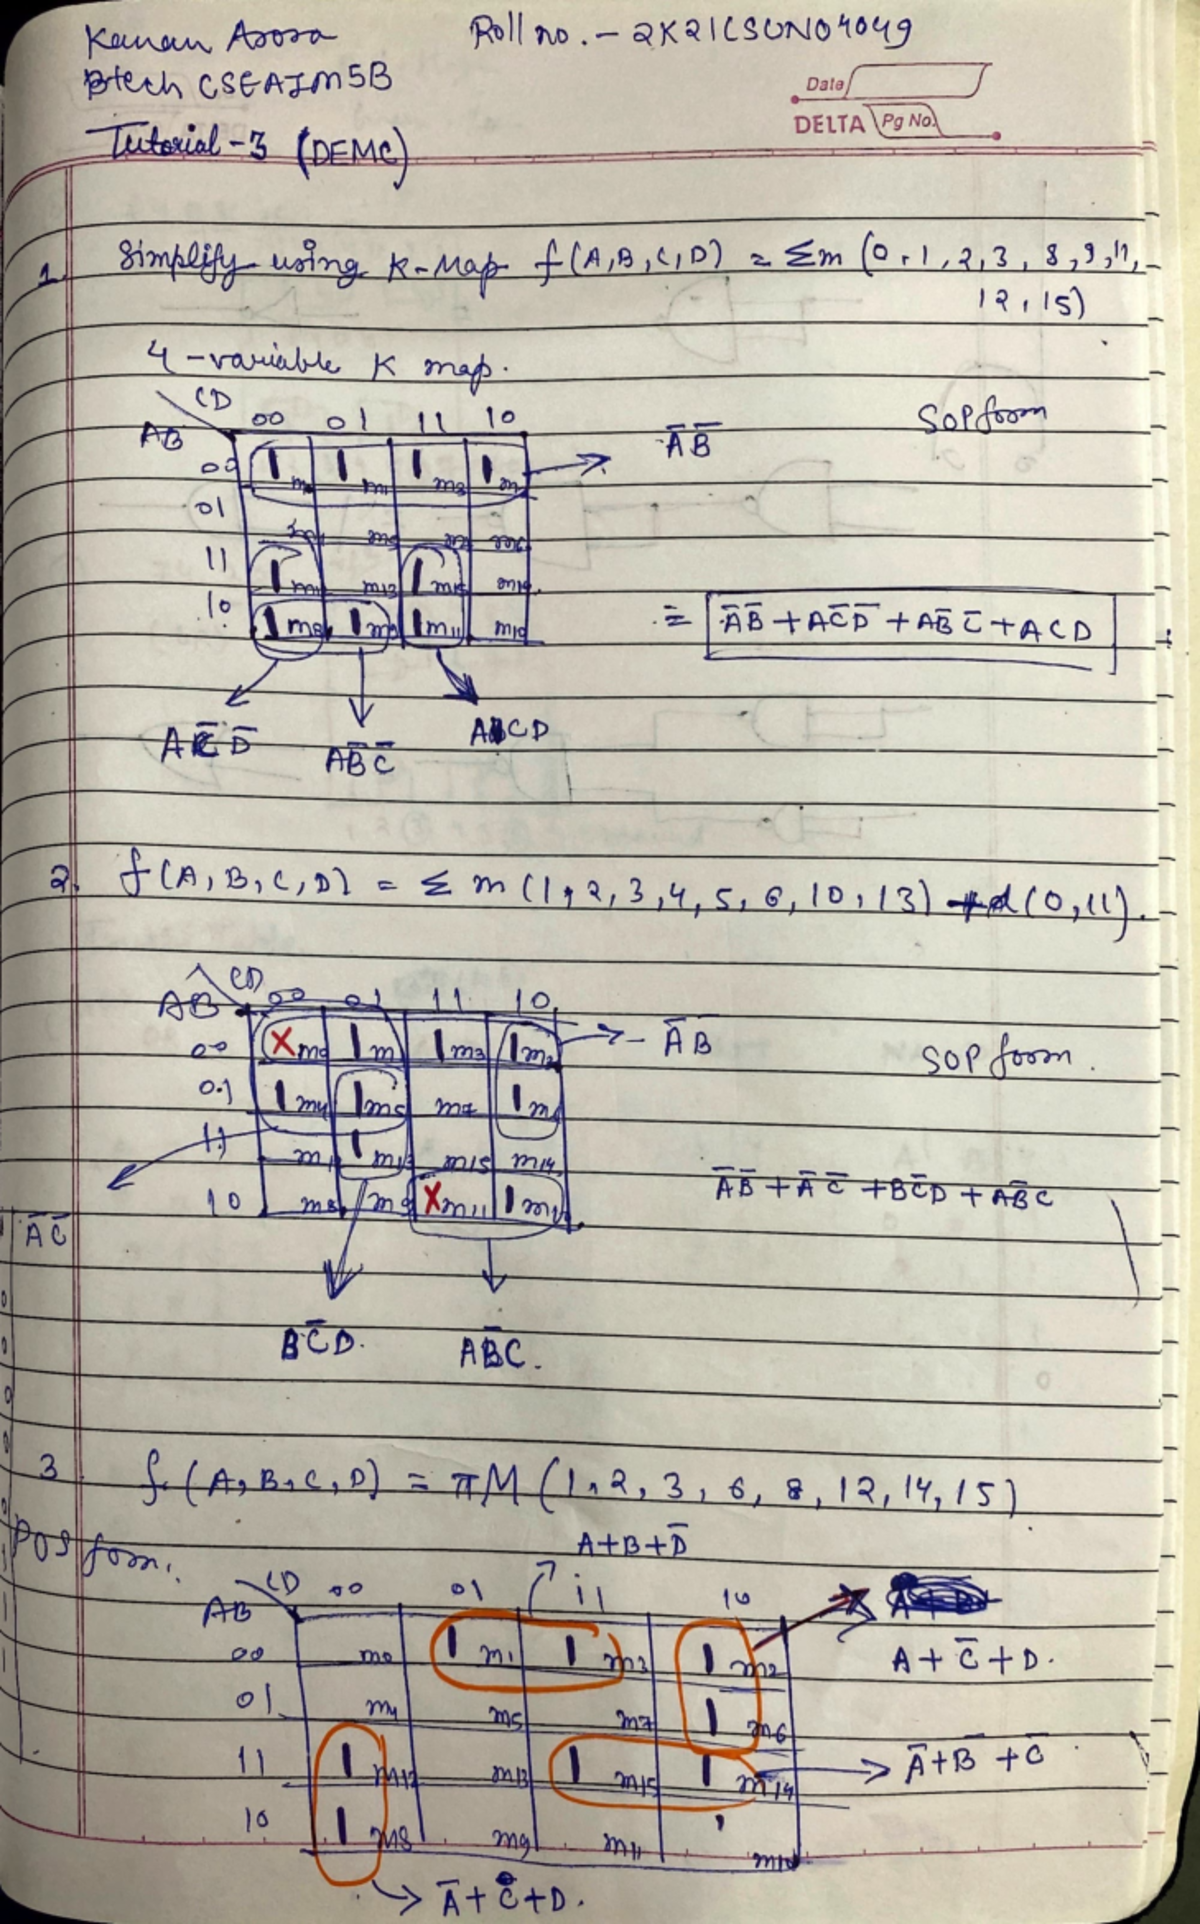 Kanan Arora Roll no. - 2K21CSUN04049
Btech CSEAIM5B
Date
DELTA Pg No.
Tutorial-3 (DEMC)
1. Simplify using K-Map f(A,B,C,D) = Σm (0,1,2,3,8,9,11,
12,15)
4-variable K map.
CD
AB 00 01 11 10
SOP form
00 1 m0 1 m1 1 m3 1 m2 → A̅B̅
01 m4 m5 m7 m6
11 1 m12 m13 1 m15 m14
10 1 m8 1 m9 1 m11 m10
= A̅B̅ + AC̅D̅ + AB̅C̅ + ACD
AC̅D̅ AB̅C̅ ACD
2. f(A,B,C,D) = Σm(1,2,3,4,5,6,10,13) + d(0,11).
CD
AB 00 01 11 10
00 X m0 1 m1 1 m3 1 m2 → A̅B̅
SOP form.
01 1 m4 1 m5 m7 1 m6
11 m12 1 m13 m15 m14
10 m8 m9 X m11 1 m10
A̅B̅ + A̅C̅ + BC̅D + AB̅C
A̅C̅
BC̅D. AB̅C.
3 f(A,B,C,D) = πM (1,2,3,6,8,12,14,15)
POS form.
A+B+D̅
CD
AB 00 01 11 10
00 m0 1 m1 1 m3 1 m2
A+C̅+D.
01 m4 m5 m7 1 m6
11 1 m12 m13 1 m15 1 m14 → A̅+B̅+C̅
10 1 m8 m9 m11 m10
→ A̅+C+D.